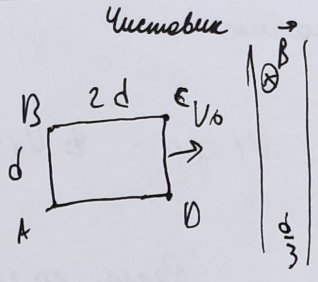 Чистовик
B 2d C V₀ B
d
A D d/3